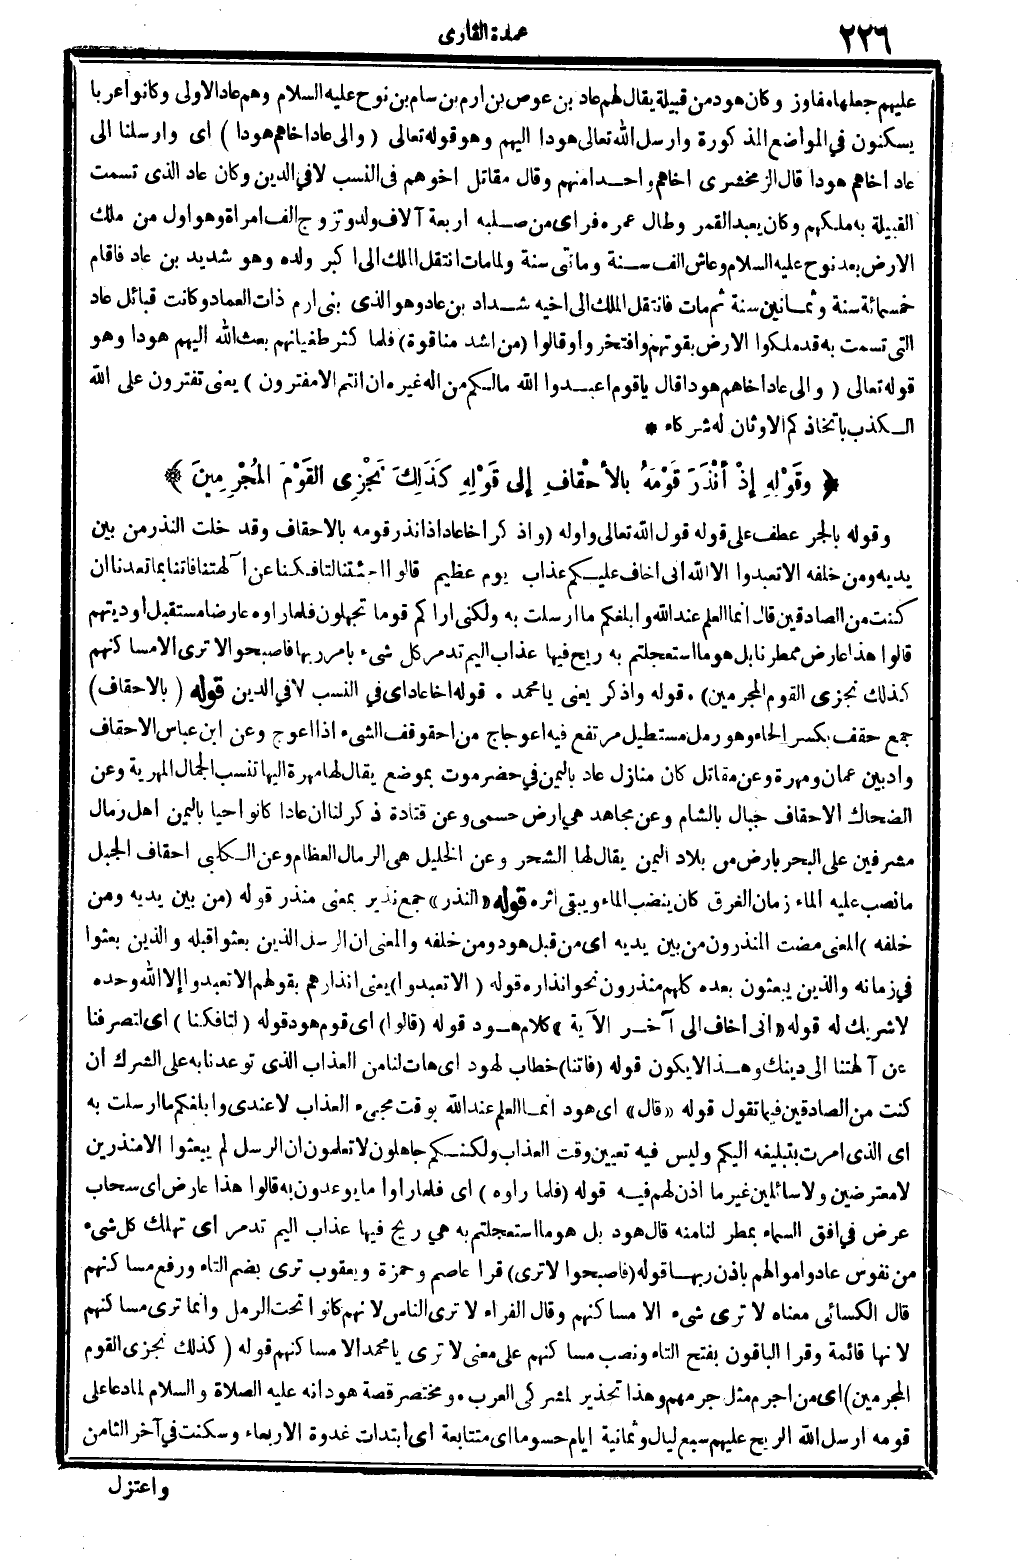 ٢٢٦
عمدة القارى
عليهم جعلها مفاوز وكان هود من قبيلة يقال لهم عاد بن عوص بن ارم بن سام بن نوح عليه السلام وهم عاد الاولى وكانوا عربا
يسكنون في المواضع المذكورة وارسل الله تعالى هودا اليهم وهو قوله تعالى ( والى عاد اخاهم هودا ) اى وارسلنا الى
عاد اخاهم هودا قال الزمخشرى اخاهم واحدا منهم وقال مقاتل اخوهم فى النسب لا في الدين وكان عاد الذى تسمت
القبيلة به ملكهم وكان يعبد القمر وطال عمره فراى من صلبه اربعة آلاف ولد وتزوج الف امراة وهو اول من ملك
الارض بعد نوح عليه السلام وعاش الف سنة ومائتى سنة ولما مات انتقل الملك الى اكبر ولده وهو شديد بن عاد فاقام
خمسمائة سنة وثمانين سنة ثم مات فانتقل الملك الى اخيه شداد بن عاد وهو الذى بنى ارم ذات العماد وكانت قبائل عاد
التى تسمت به قد ملكوا الارض بقوتهم وافتخروا وقالوا (من اشد منا قوة) فلما كثر طغيانهم بعث الله اليهم هودا وهو
قوله تعالى ( والى عاد اخاهم هودا قال ياقوم اعبدوا الله مالكم من اله غيره ان انتم الا مفترون ) يعنى تفترون على الله
الكذب باتخاذكم الاوثان له شركاء *
﴿ وقَوْلِهِ إذْ أنْذَرَ قَوْمَهُ بالأحْقافِ إلى قَوْلِهِ كَذَلِكَ نَجْزِى القَوْمَ المُجْرِمِينَ ﴾
وقوله بالجر عطف على قوله قول الله تعالى واوله (واذكر اخا عاد اذ انذر قومه بالاحقاف وقد خلت النذر من بين
يديه ومن خلفه الا تعبدوا الا الله انى اخاف عليكم عذاب يوم عظيم قالوا اجئتنا لتافكنا عن آلهتنا فاتنا بما تعدنا ان
كنت من الصادقين قال انما العلم عند الله وابلغكم ما ارسلت به ولكنى اراكم قوما تجهلون فلما راوه عارضا مستقبل اوديتهم
قالوا هذا عارض ممطرنا بل هو ما استعجلتم به ريح فيها عذاب اليم تدمر كل شىء بامر ربها فاصبحوا لا ترى الا مساكنهم
كذلك نجزى القوم المجرمين) . قوله واذكر يعنى يا محمد . قوله اخا عاد اى في النسب لا في الدين قوله ( بالاحقاف)
جمع حقف بكسر الحاء وهو رمل مستطيل مرتفع فيه اعوجاج من احقوقف الشىء اذا اعوج وعن ابن عباس الاحقاف
واد بين عمان ومهرة وعن مقاتل كان منازل عاد باليمن في حضرموت بموضع يقال لها مهرة اليها تنسب الجمال المهرية وعن
الضحاك الاحقاف جبال بالشام وعن مجاهد هي ارض حسمى وعن قتادة ذكر لنا ان عادا كانوا حيا باليمن اهل رمال
مشرفين على البحر بارض من بلاد اليمن يقال لها الشحر وعن الخليل هى الرمال العظام وعن الكلبى احقاف الجبل
ما نصب عليه الماء زمان الغرق كان ينضب الماء ويبقى اثره قوله «النذر» جمع نذير بمعنى منذر قوله (من بين يديه ومن
خلفه ) المعنى مضت المنذرون من بين يديه اى من قبل هود ومن خلفه والمعنى ان الرسل الذين بعثوا قبله والذين بعثوا
في زمانه والذين يبعثون بعده كلهم منذرون نحو انذاره قوله ( الا تعبدوا) يعنى انذارهم بقولهم الا تعبدوا إلا الله وحده
لا شريك له قوله «انى اخاف الى آخر الآية » كلام هود قوله (قالوا) اى قوم هود قوله ( لتافكنا ) اى لتصرفنا
عن آلهتنا الى دينك وهذا لا يكون قوله (فاتنا) خطاب لهود اى هات لنا من العذاب الذى توعدنا به على الشرك ان
كنت من الصادقين فيما تقول قوله «قال» اى هود انما العلم عند الله بوقت مجىء العذاب لا عندى وابلغكم ما ارسلت به
اى الذى امرت بتبليغه اليكم وليس فيه تعيين وقت العذاب ولكنكم جاهلون لا تعلمون ان الرسل لم يبعثوا الا منذرين
لا معترضين ولا سائلين غير ما اذن لهم فيه قوله (فلما راوه ) اى فلما راوا ما يوعدون به قالوا هذا عارض اى سحاب
عرض في افق السماء بمطر لنا منه قال هود بل هو ما استعجلتم به هي ريح فيها عذاب اليم تدمر اى تهلك كل شىء
من نفوس عاد واموالهم باذن ربها قوله (فاصبحوا لا ترى) قرا عاصم وحمزة ويعقوب ترى بضم التاء ورفع مساكنهم
قال الكسائى معناه لا ترى شىء الا مساكنهم وقال الفراء لا ترى الناس لانهم كانوا تحت الرمل وانما ترى مساكنهم
لانها قائمة وقرا الباقون بفتح التاء ونصب مساكنهم على معنى لا ترى يا محمد الا مساكنهم قوله ( كذلك نجزى القوم
المجرمين) اى من اجرم مثل جرمهم وهذا تحذير لمشركى العرب . ومختصر قصة هود انه عليه الصلاة والسلام لما دعا على
قومه ارسل الله الريح عليهم سبع ليال وثمانية ايام حسوما اى متتابعة اى ابتدات غدوة الاربعاء وسكنت في آخر الثامن
واعتزل